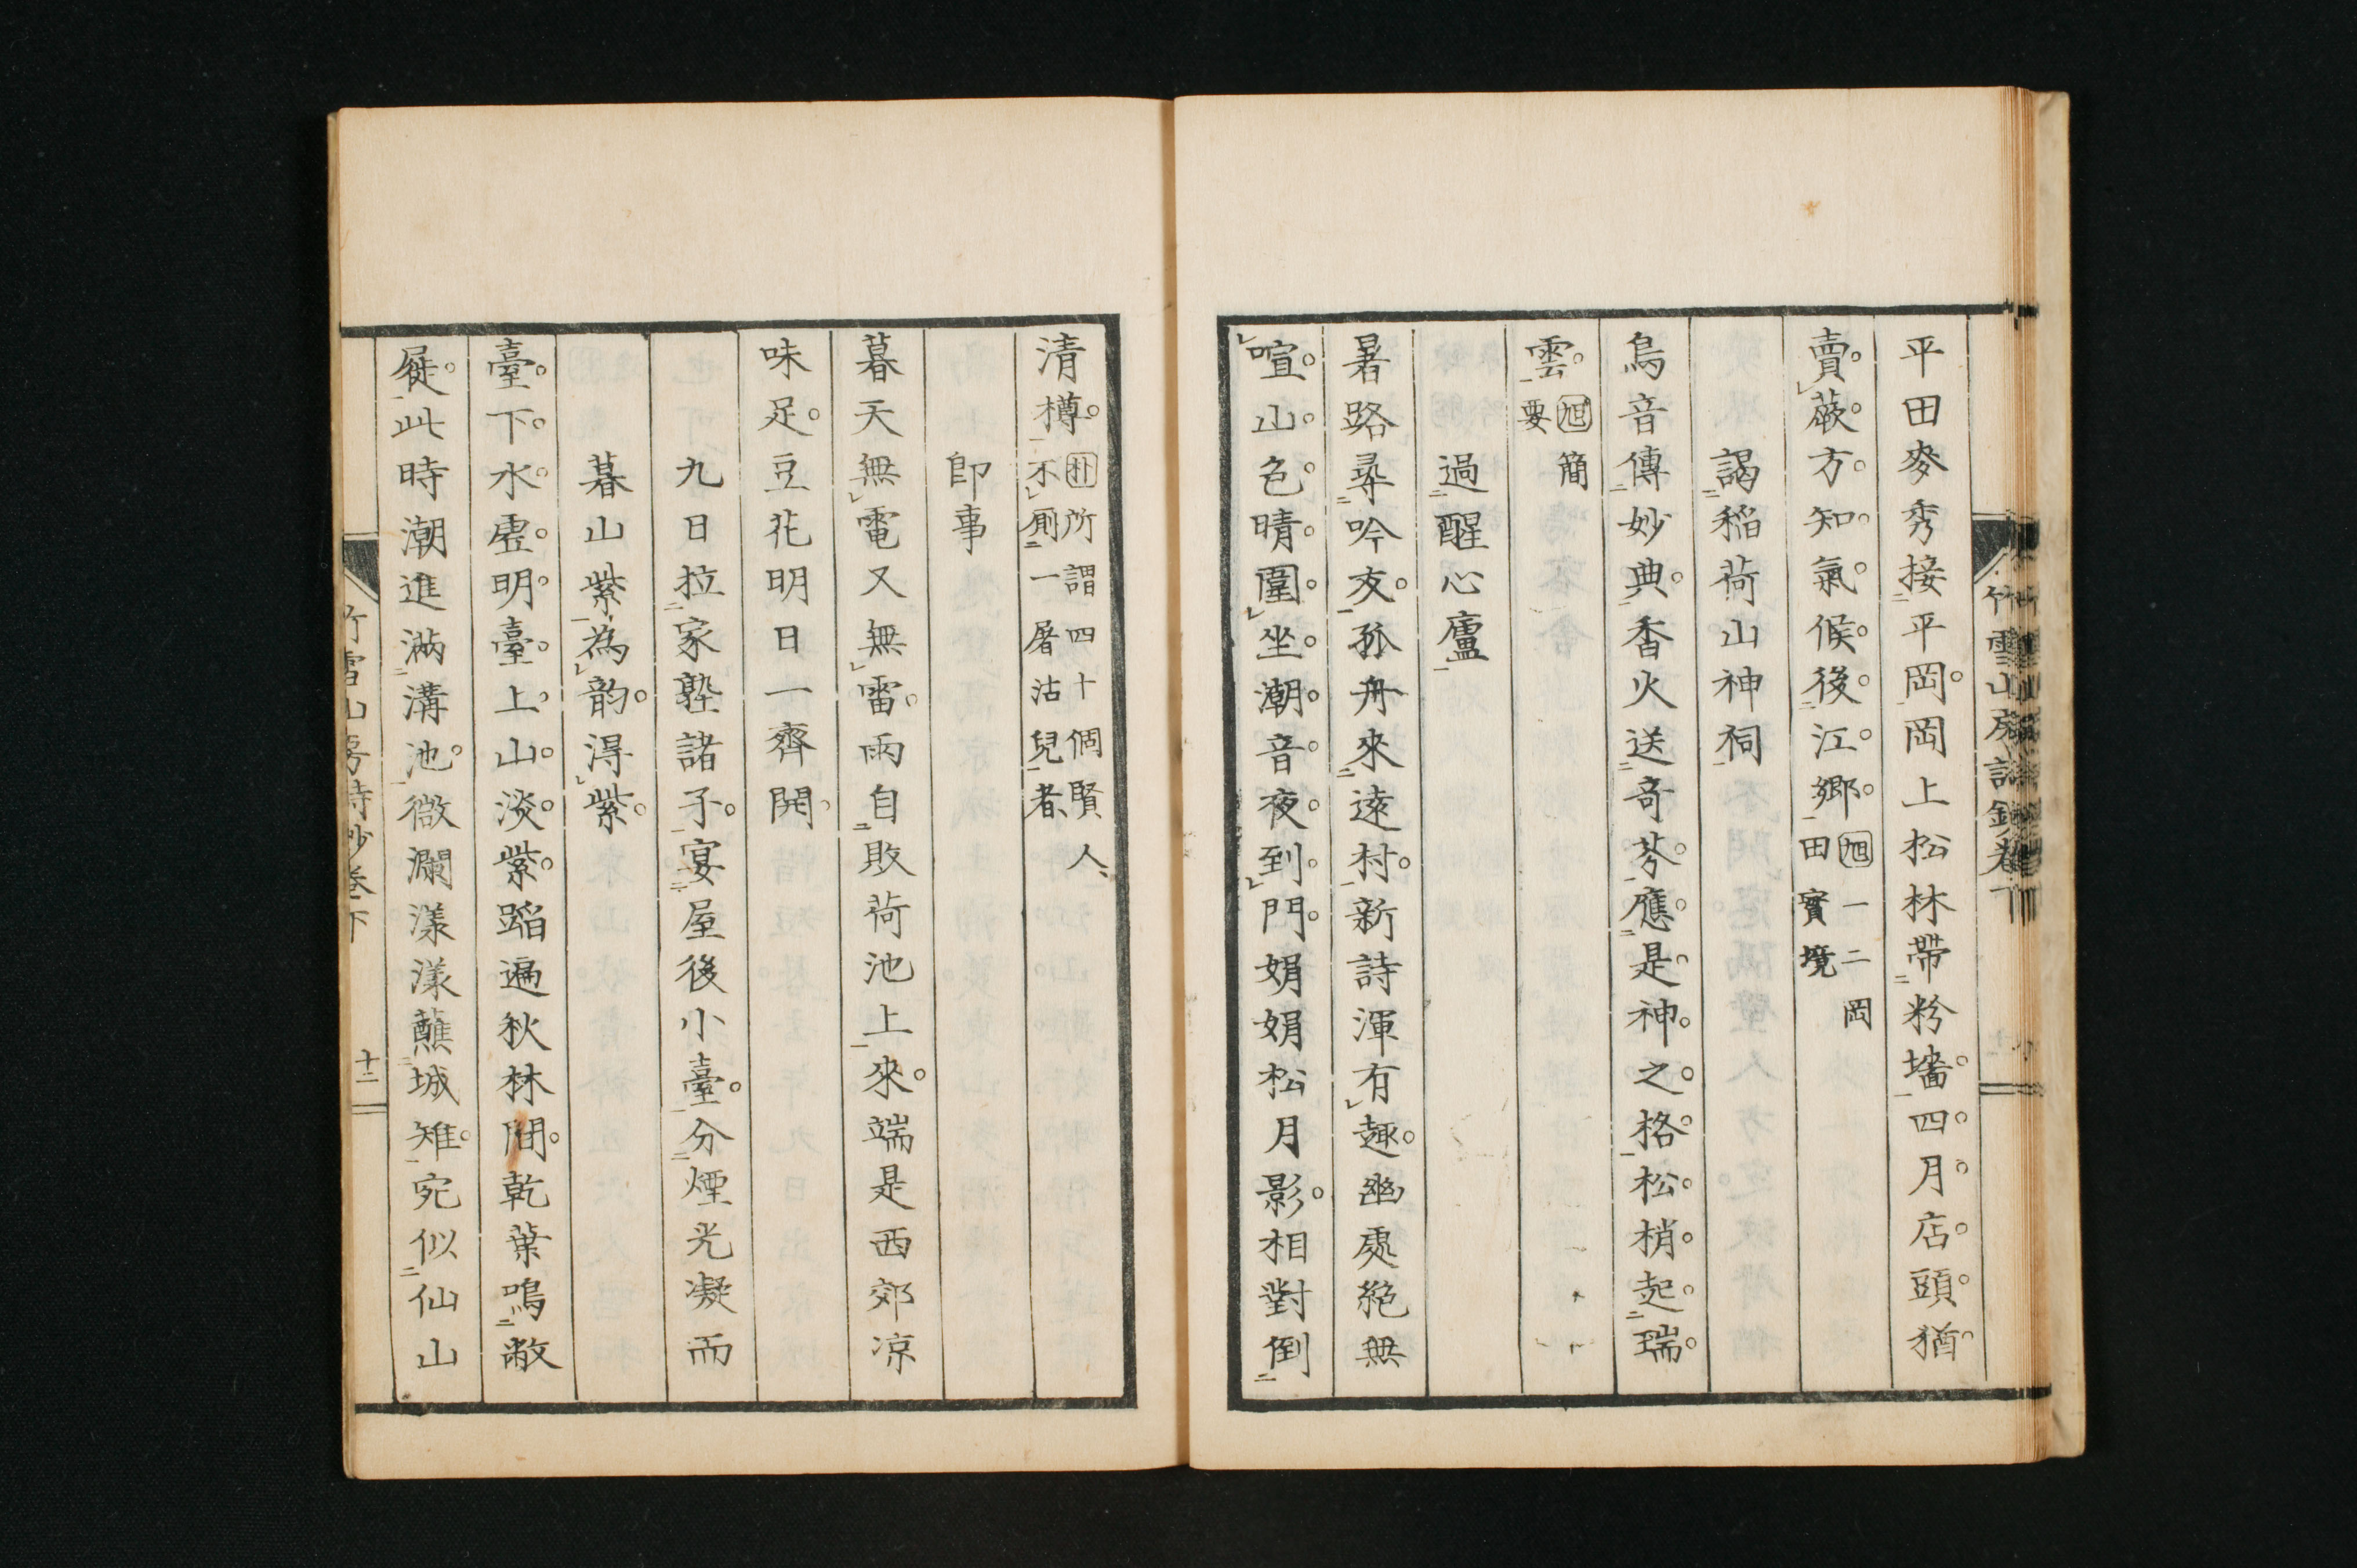 平田麥秀接平岡。岡上松林帶粉墻。四月店頭猶
賣蕨。方知氣候後江鄉。旭一二岡
田實境
謁稻荷山神祠
鳥音傳妙典。香火送奇芬。應是神之格。松梢起瑞
雲。旭簡
要
過醒心廬
暑路尋吟友。孤舟來遠村。新詩渾有趣。幽處絕無
喧。山色晴圍坐。潮音夜到門。娟娟松月影。相對倒
清樽。朴所謂四十個賢人、
不厠一屠沽兒者、
即事
暮天無電又無雷。雨自敗荷池上來。端是西郊凉
味足。豆花明日一齊開。
九日拉家塾諸子。宴屋後小臺。分煙光凝而
暮山紫為韵。得紫。
臺下水虛明。臺上山淡紫。蹈遍秋林間。乾葉鳴敝
屣。此時潮進滿溝池。微瀾漾漾蘸城雉。宛似仙山
竹雪山房詩鈔卷下
竹雪山房詩鈔卷下
十二